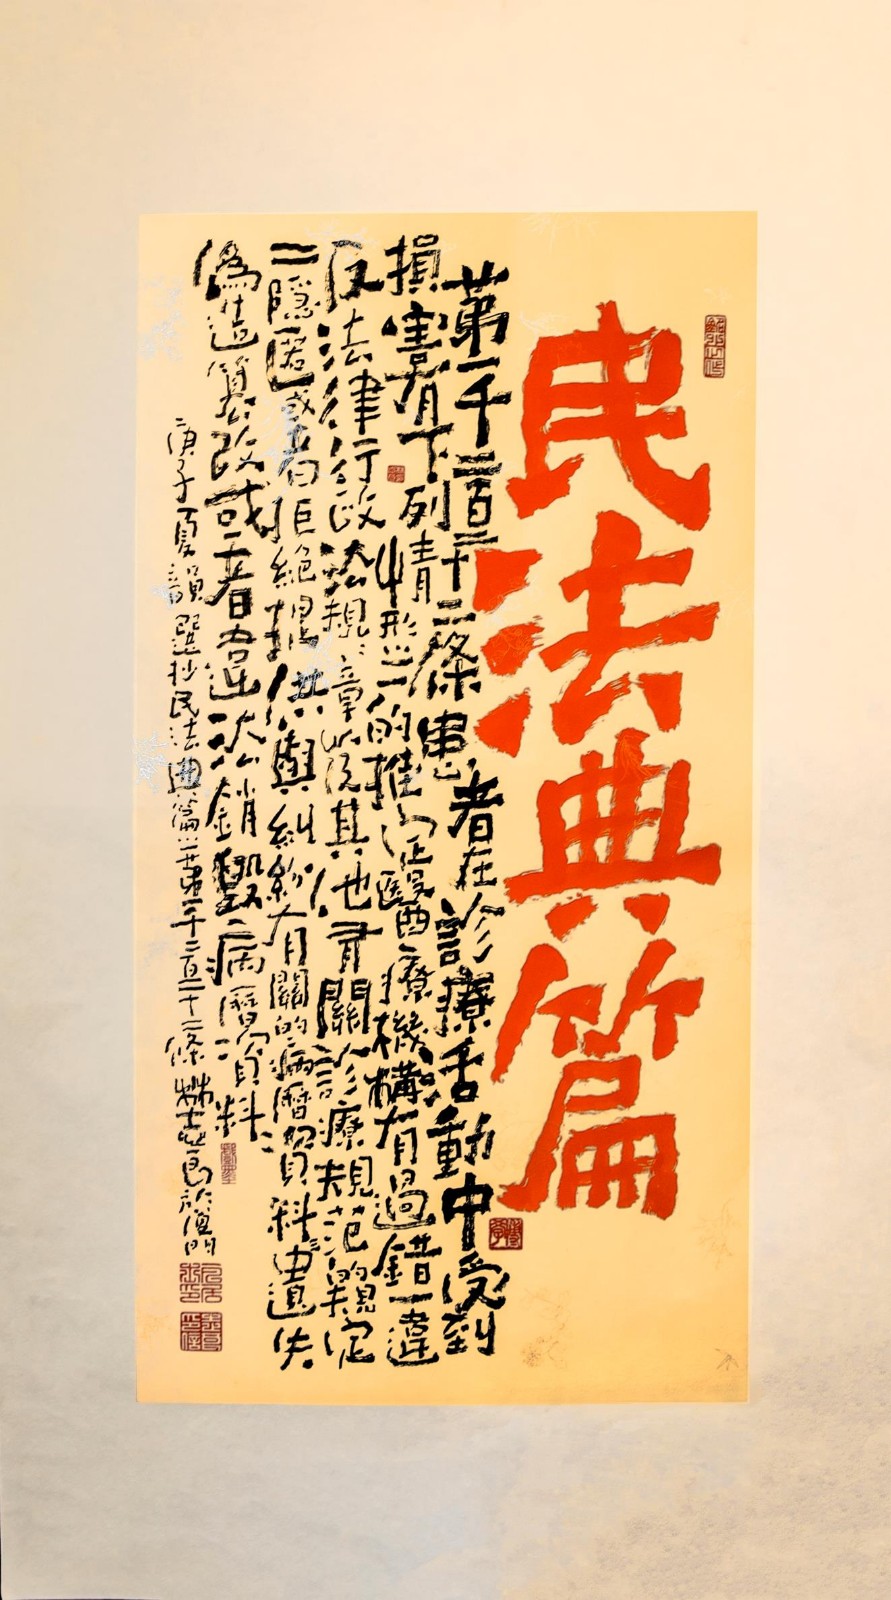 民法典篇
第一千二百二十二條患者在診療活動中受到
損害有下列情形之一的推定醫療機構有過錯一違
反法律行政法規〻章以及其他有關診療規范的規定
二隱匿或者拒絕提供與糾紛有關的病曆資料三遺失
偽造篡改或者違法銷毀病曆資料
庚子夏韻選抄民法典篇之第一千二百二十二條 志良於澳門